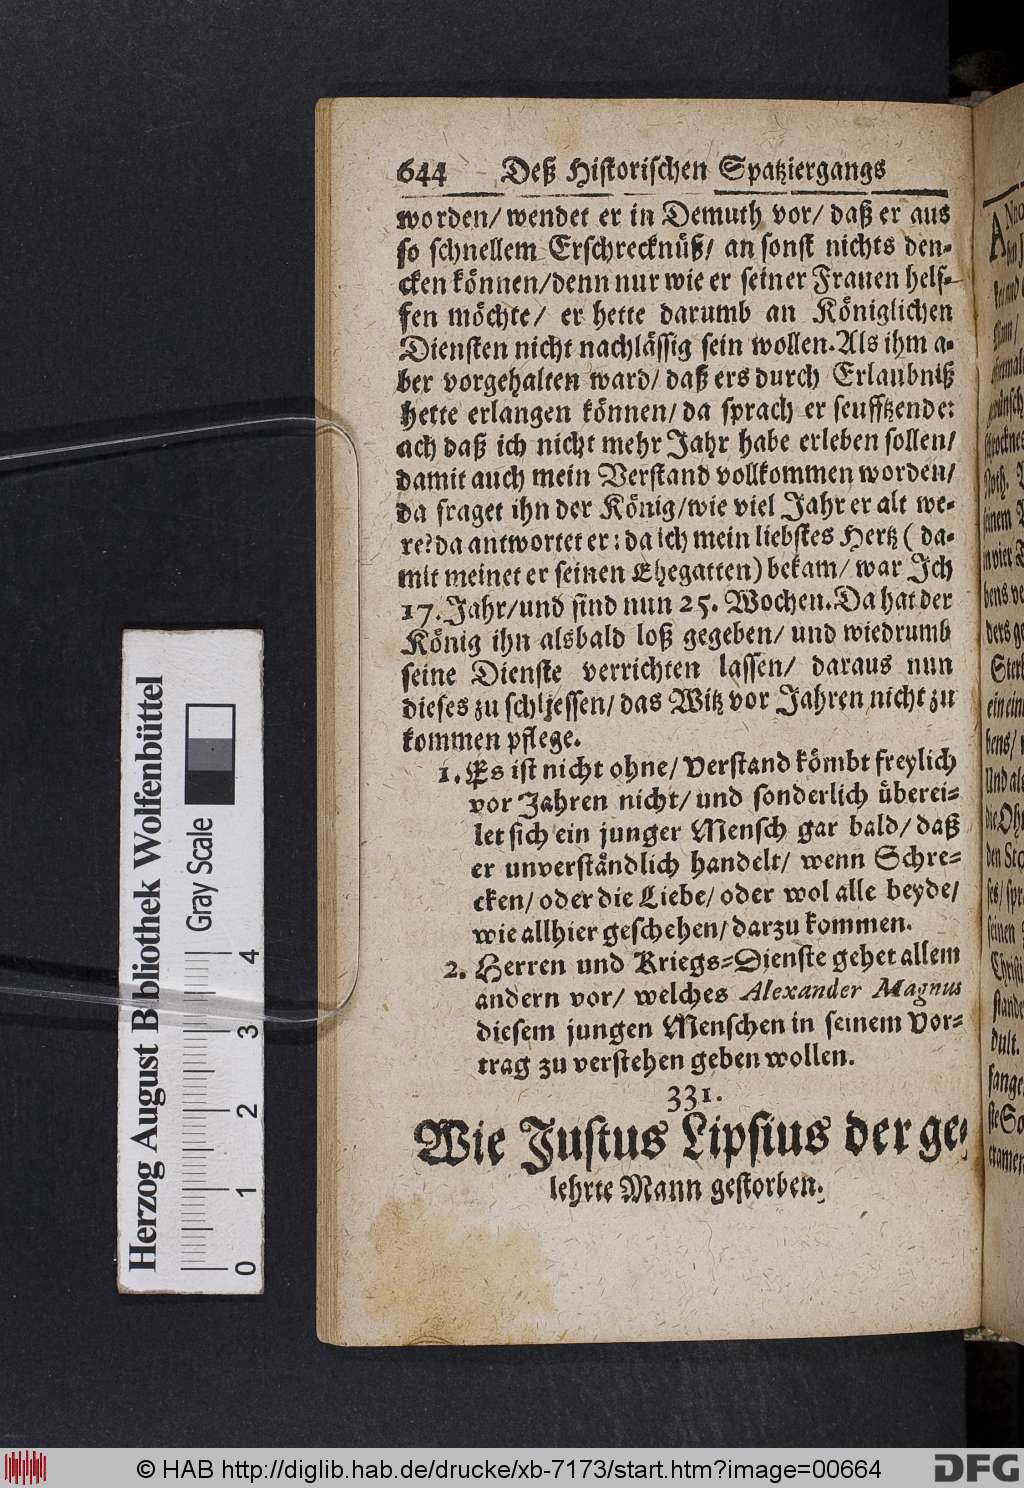 644 Deß Historischen Spatziergangs
worden/ wendet er in Demuth vor/ daß er aus
so schnellem Erschrecknüß/ an sonst nichts den-
cken können/denn nur wie er seiner Frauen helf-
fen möchte/ er hette darumb an Königlichen
Diensten nicht nachlässig sein wollen. Als ihm a-
ber vorgehalten ward/ daß ers durch Erlaubniß
hette erlangen können/ da sprach er seufftzende:
ach daß ich nicht mehr Jahr habe erleben sollen/
damit auch mein Verstand vollkommen worden/
da fraget ihn der König/wie viel Jahr er alt we-
re? da antwortet er: da ich mein liebstes Hertz ( da-
mit meinet er seinen Ehegatten) bekam/ war Ich
17. Jahr/und sind nun 25. Wochen. Da hat der
König ihn alsbald loß gegeben/ und wiedrumb
seine Dienste verrichten lassen/ daraus nun
dieses zu schliessen/ das Witz vor Jahren nicht zu
kommen pflege.
1. Es ist nicht ohne/ Verstand kömbt freylich
vor Jahren nicht/ und sonderlich überei-
let sich ein junger Mensch gar bald/ daß
er unverständlich handelt/ wenn Schre-
cken/ oder die Liebe/ oder wol alle beyde/
wie allhier geschehen/ darzu kommen.
2. Herren und Kriegs-Dienste gehet allem
andern vor/ welches Alexander Magnus
diesem jungen Menschen in seinem Vor-
trag zu verstehen geben wollen.
331.
Wie Justus Lipsius der ge-
lehrte Mann gestorben.
Herzog August Bibliothek Wolfenbüttel
Gray Scale
0 1 2 3 4
© HAB http://diglib.hab.de/drucke/xb-7173/start.htm?image=00664
DFG